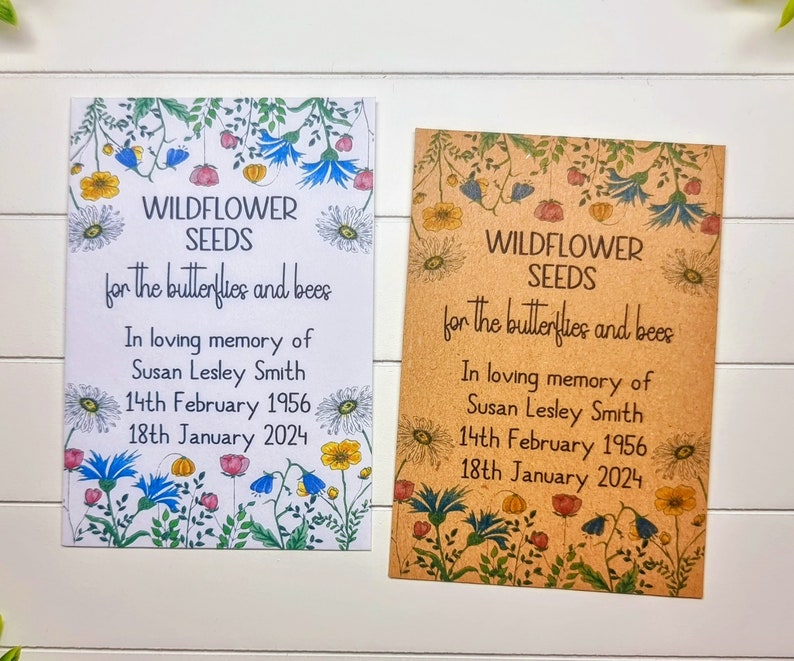 WILDFLOWER
SEEDS
for the butterflies and bees
In loving memory of
Susan Lesley Smith
14th February 1956
18th January 2024
WILDFLOWER
SEEDS
for the butterflies and bees
In loving memory of
Susan Lesley Smith
14th February 1956
18th January 2024